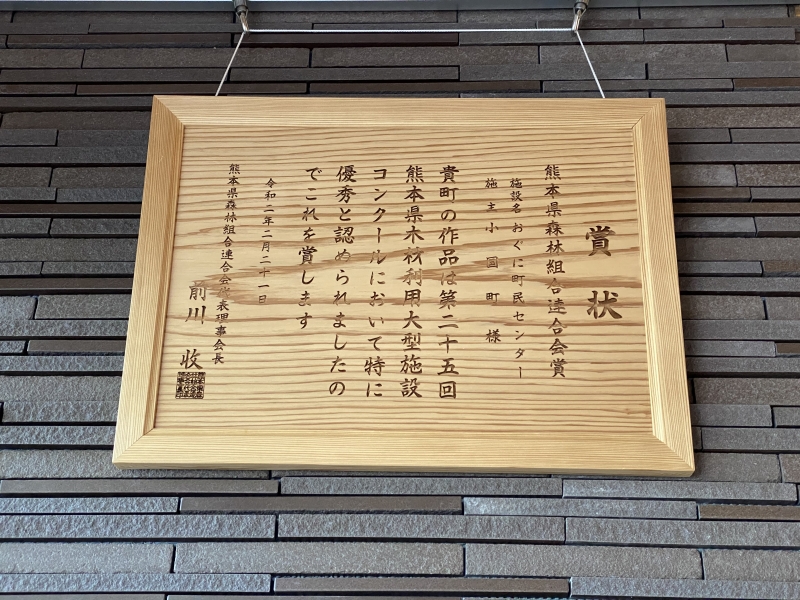 賞状
熊本県森林組合連合会賞
施設名 おぐに町民センター
施主 小国町 様
貴町の作品は第二十五回
熊本県木材利用大型施設
コンクールにおいて特に
優秀と認められましたの
でこれを賞します
令和二年二月二十一日
熊本県森林組合連合会代表理事会長
前川 收